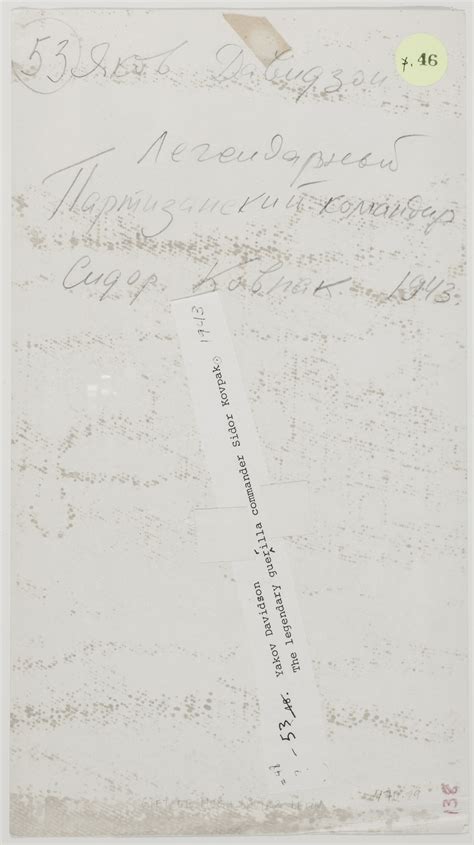 53 Яков Давидзон
7.46
Легендарный
Партизанский командир
Сидор Ковпак 1943.
1943
- 53 48. Yakov Davidson
The legendary guerilla commander Sidor Kovpak.
138